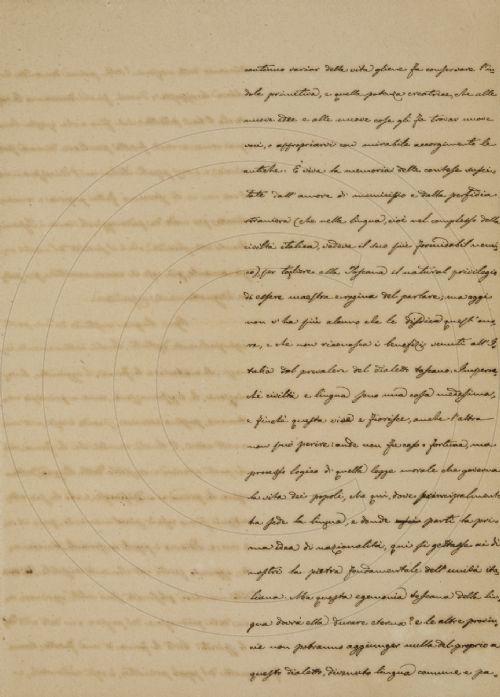 continuo variar della vita gliene fa conservare l'in
dole primitiva, e quella potenza creatrice, che alle
nuove idee e alle nuove cose gli fa trovar nuove
voci, o appropriarvi con mirabile accorgimento le
antiche. È viva la memoria delle contese susci,
tate dall'amore di municipio e dalla perfidia
straniera (che nella lingua, cioè nel complesso della
civiltà italica, vedeva il suo più formidabil nemi,
co), per togliere alla Toscana il natural privilegio
di essere maestra e regina del parlare; ma oggi
non v'ha più alcuno che le disdica quest'ono,
re, e che non riconosca i benefizj venuti all'I,
talia dal prevalere del dialetto toscano. Imperoc,
chè civiltà e lingua sono una cosa medesima,
e finchè questa vive e fiorisce, anche l'altra
non può perire: onde non fu caso o fortuna, ma
processo logico di quella legge morale che governa
la vita dei popoli, che qui, dove principalmente
ha sede la lingua, e donde partì la pri,
ma idea di nazionalità, qui si gettasse ai dì
nostri la pietra fondamentale dell'unità ita,
liana. Ma questa egemonia toscana della lin,
gua dovrà ella durare eterna? e le altre provin,
cie non potranno aggiunger nulla del proprio a
questo dialetto, divenuto lingua comune e pa,